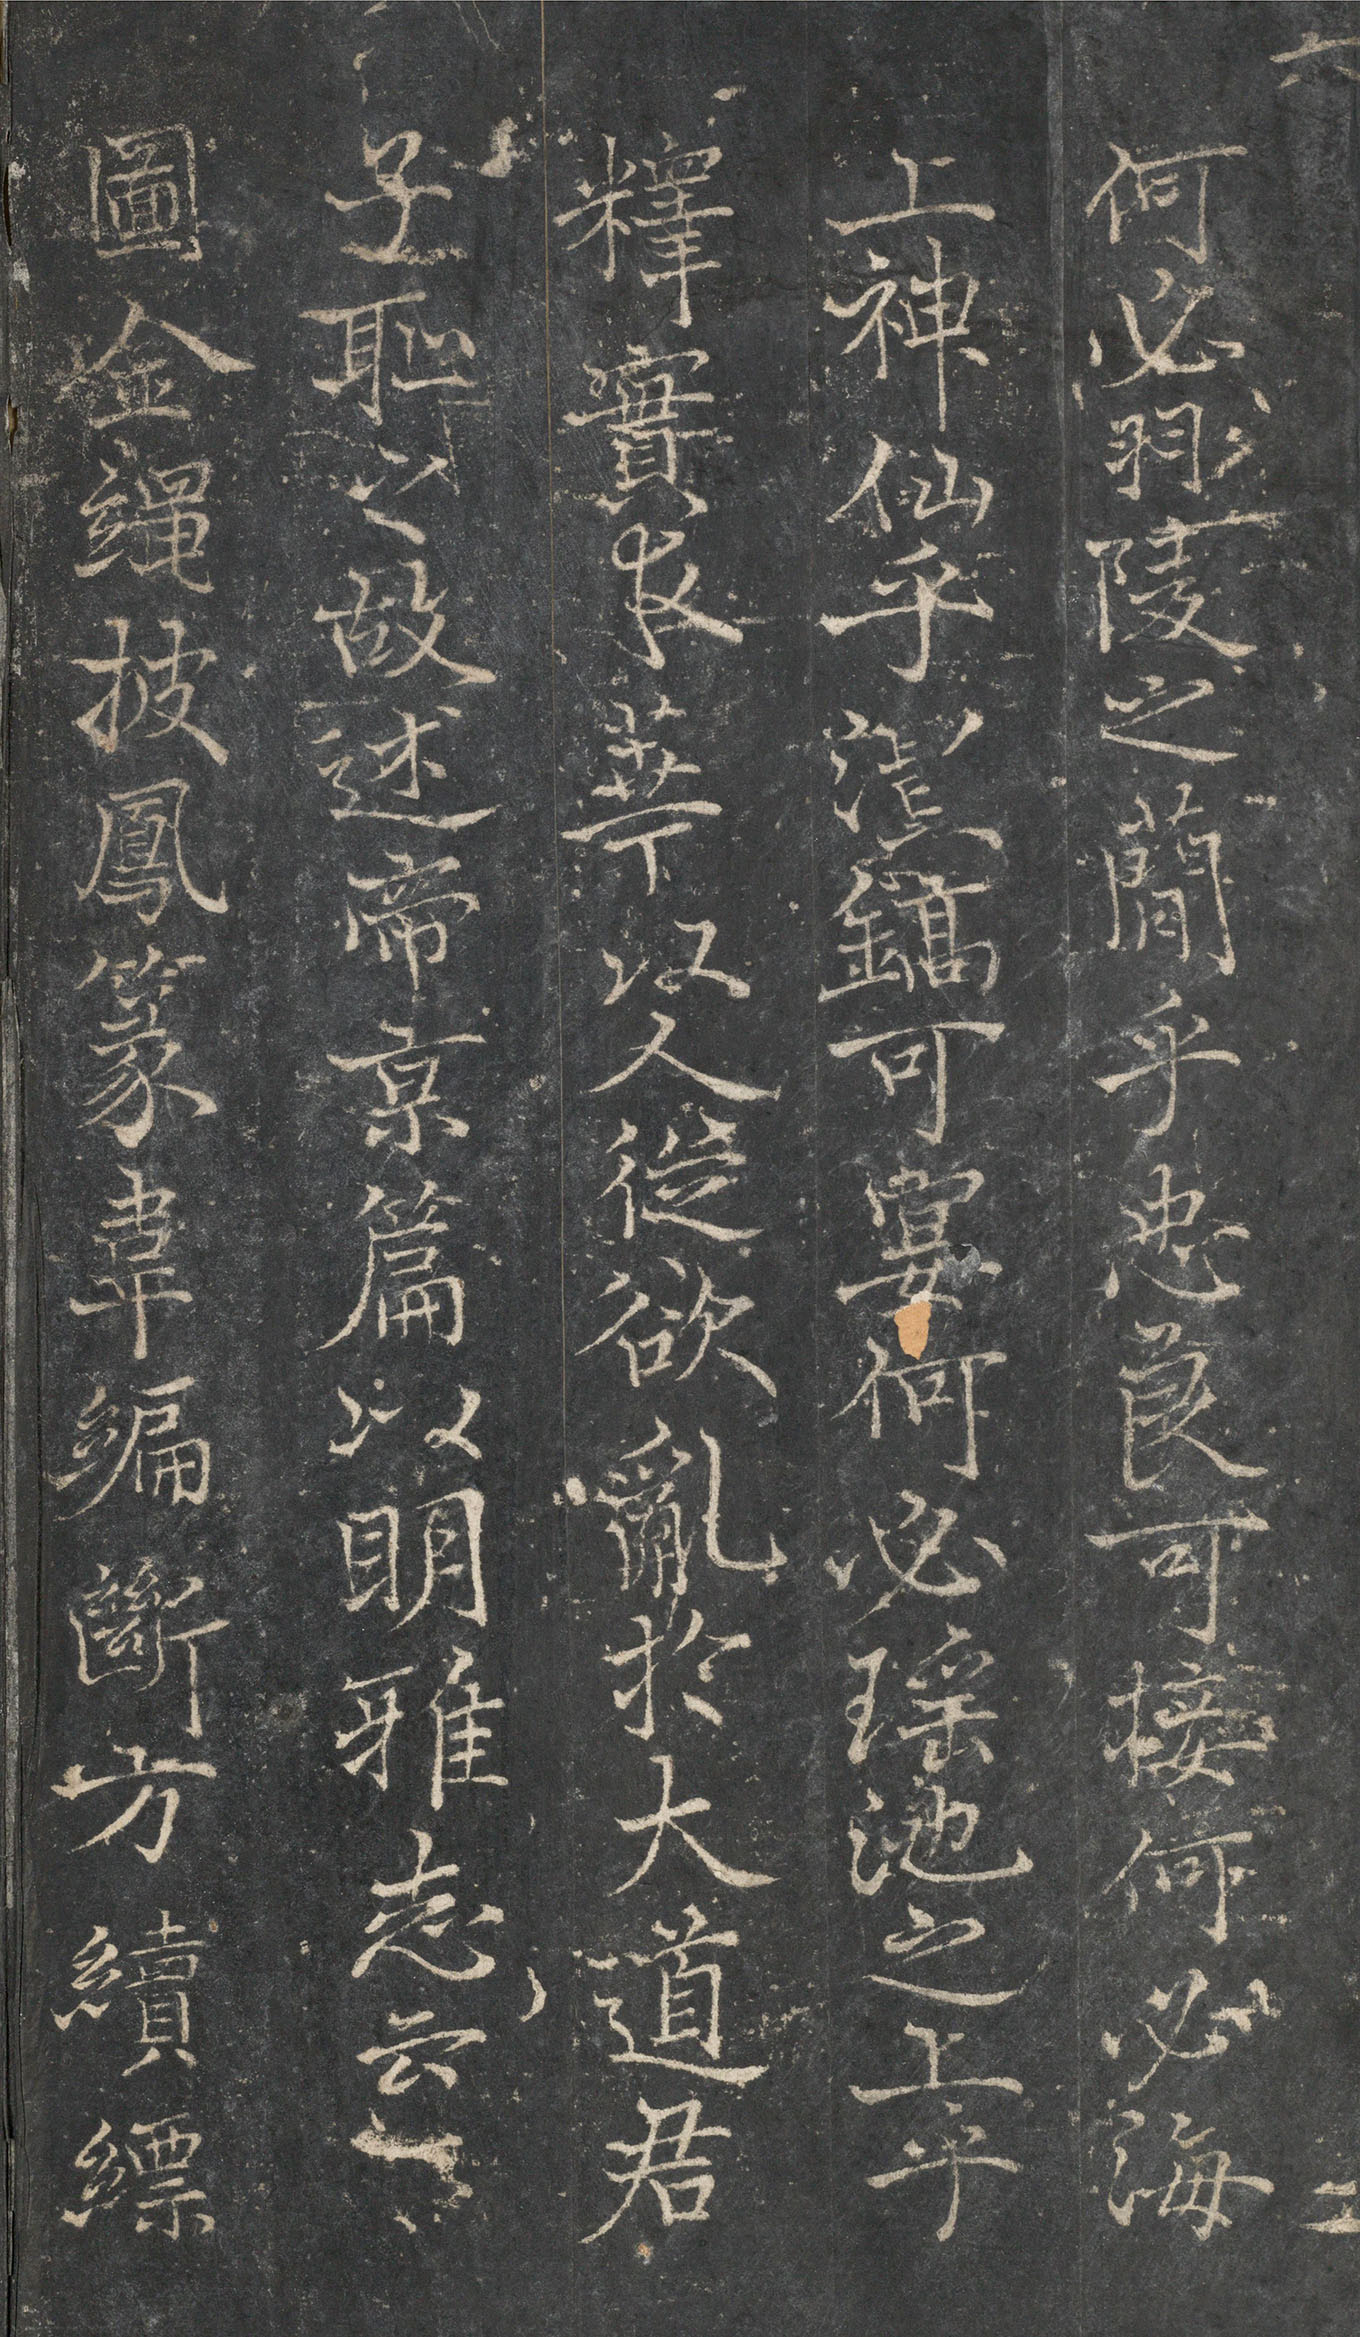 何必羽陵之蕳乎忠良可接何必海
上神仙乎澧鎬可宴何必瑤池之上乎
釋實求華以人從欲亂於大道君
子恥之故述帝京篇以明雅志云尒
圖金繩披鳳篆韋編斷方續縹